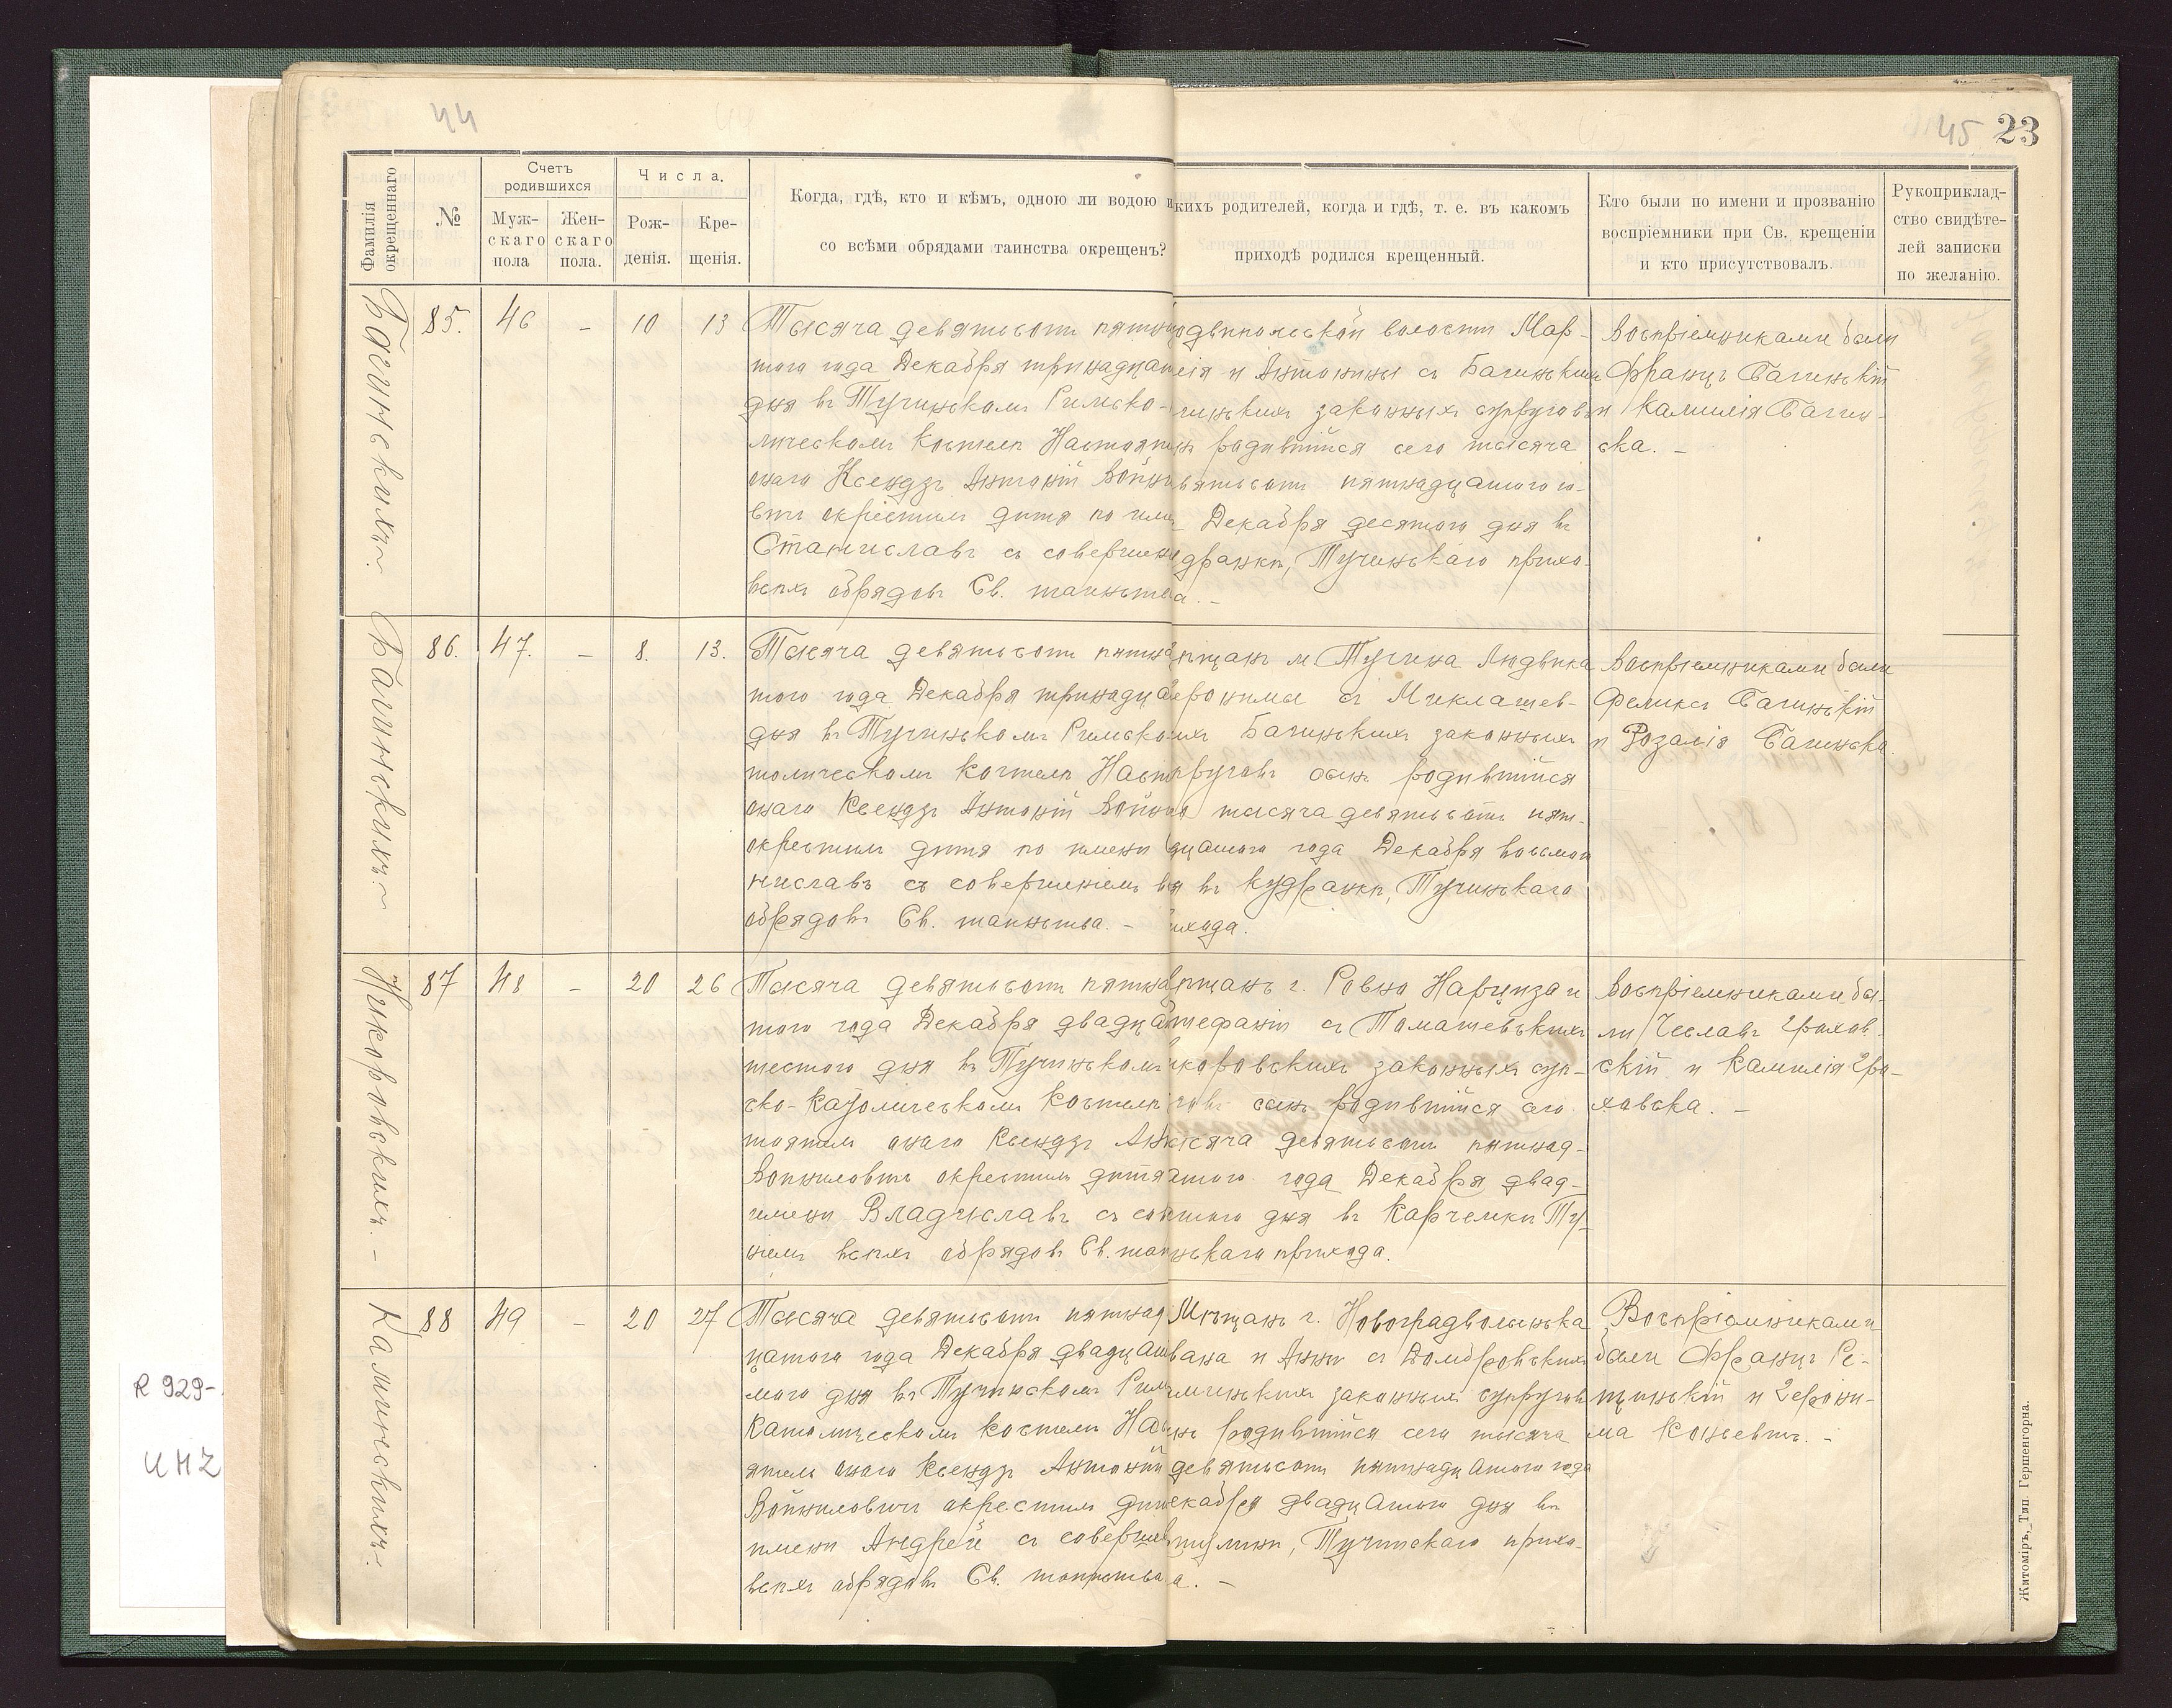 44
45 23
Фамилія окрещеннаго
№
Счетъ родившихся
Муж-
скаго
пола
Жен-
скаго
пола.
Числа.
Рож-
денія.
Кре-
щенія.
Когда, гдѣ, кто и кѣмъ, одною ли водою и
со всѣми обрядами таинства окрещенъ?
кихъ родителей, когда и гдѣ, т. е. въ какомъ
приходѣ родился крещенный.
Кто были по имени и прозванію
воспріемники при Св. крещеніи
и кто присутствовалъ.
Рукоприклад-
ство свидѣте-
лей записки
по желанію.
Багинскихъ.
85. 46 – 10 13
Тысяча девятьсотъ пятна
того года Декабря тринадцат
дня въ Тучинскомъ Римско-
лическомъ костелѣ Настояте
онаго Ксендзъ Антоній Война
вичъ окрестилъ дитя по имен
Станиславъ съ совершен
всѣхъ обрядовъ Св. таинства
одвипольской волости Мар-
елія и Антонины съ Багинских
гинскихъ законныхъ супруговъ
нъ родившійся сего тысяча
вятьсотъ пятнадцатого го-
Декабря десятого дня въ
дранкѣ, Тучинскаго прихо-
а. –
Воспріемниками были
Францъ Багинскій
и Камилія Багин-
ска. –
Багинскихъ.
86. 47. – 8. 13.
Тысяча девятьсотъ пятна
того года Декабря тринадца
дня въ Тучинскомъ Римско
толическомъ костелѣ Наст
онаго Ксендзъ Антоній Войни
окрестилъ дитя по имени
ниславъ съ совершеніемъ в
обрядовъ Св. таинства. –
ѣщанъ м Тучина Людвика
еронимы съ Миклашев-
ихъ Багинскихъ законныхъ
пруговъ сынъ родившійся
о тысяча девятьсотъ пят-
дцатого года Декабря восьмого
я въ Кудранкѣ, Тучинскаго
ихода.
Воспріемниками были
Феликсъ Багинскій
и Розалія Багинска.
Никоровскихъ. –
87 48 – 20 26
Тысяча девятьсотъ пятна
того года Декабря двадца
шестого дня въ Тучинскомъ
ско-Каѳолическомъ костелѣ
тоятель онаго Ксендзъ Ан
Войниловичъ окрестилъ дитя
имени Владиславъ съ сов
ніемъ всѣхъ обрядовъ Св. таи
ѣщанъ г. Ровно Нарциза и
тефаніи съ Томашевскихъ
икоровскихъ законныхъ суп-
говъ сынъ родившійся сего
ысяча девятьсотъ пятнад-
атого года Декабря двад-
атого дня въ Карчемки Ту-
нскаго прихода.
Воспріемниками бы-
ли Чеславъ Грохов-
скій и Камилія Гро-
ховска. –
Каминскихъ.
88 49 – 20 27
Тысяча девятьсотъ пятнад
цатого года Декабря двадцат
мого дня въ Тучинскомъ Рим
католическомъ костелѣ На
ятель онаго Ксендзъ Антоній
Войниловичъ окрестилъ дит
имени Андрей съ соверше
всѣхъ обрядовъ Св. таинства
Мѣщанъ г. Новоградволынска
вана и Анны съ Домбровскихъ
минскихъ законныхъ супруговъ
нъ родившійся сего тысяча
девятьсотъ пятнадцатого года
екабря двадцатого дня въ
Тучинскаго прихо-
а. –
Воспріемниками
были Францъ Ре-
щинскій и Герони-
ма Концевичъ. –
Житомiръ, Тип. Гершенгорна.
R 929-
UHZ